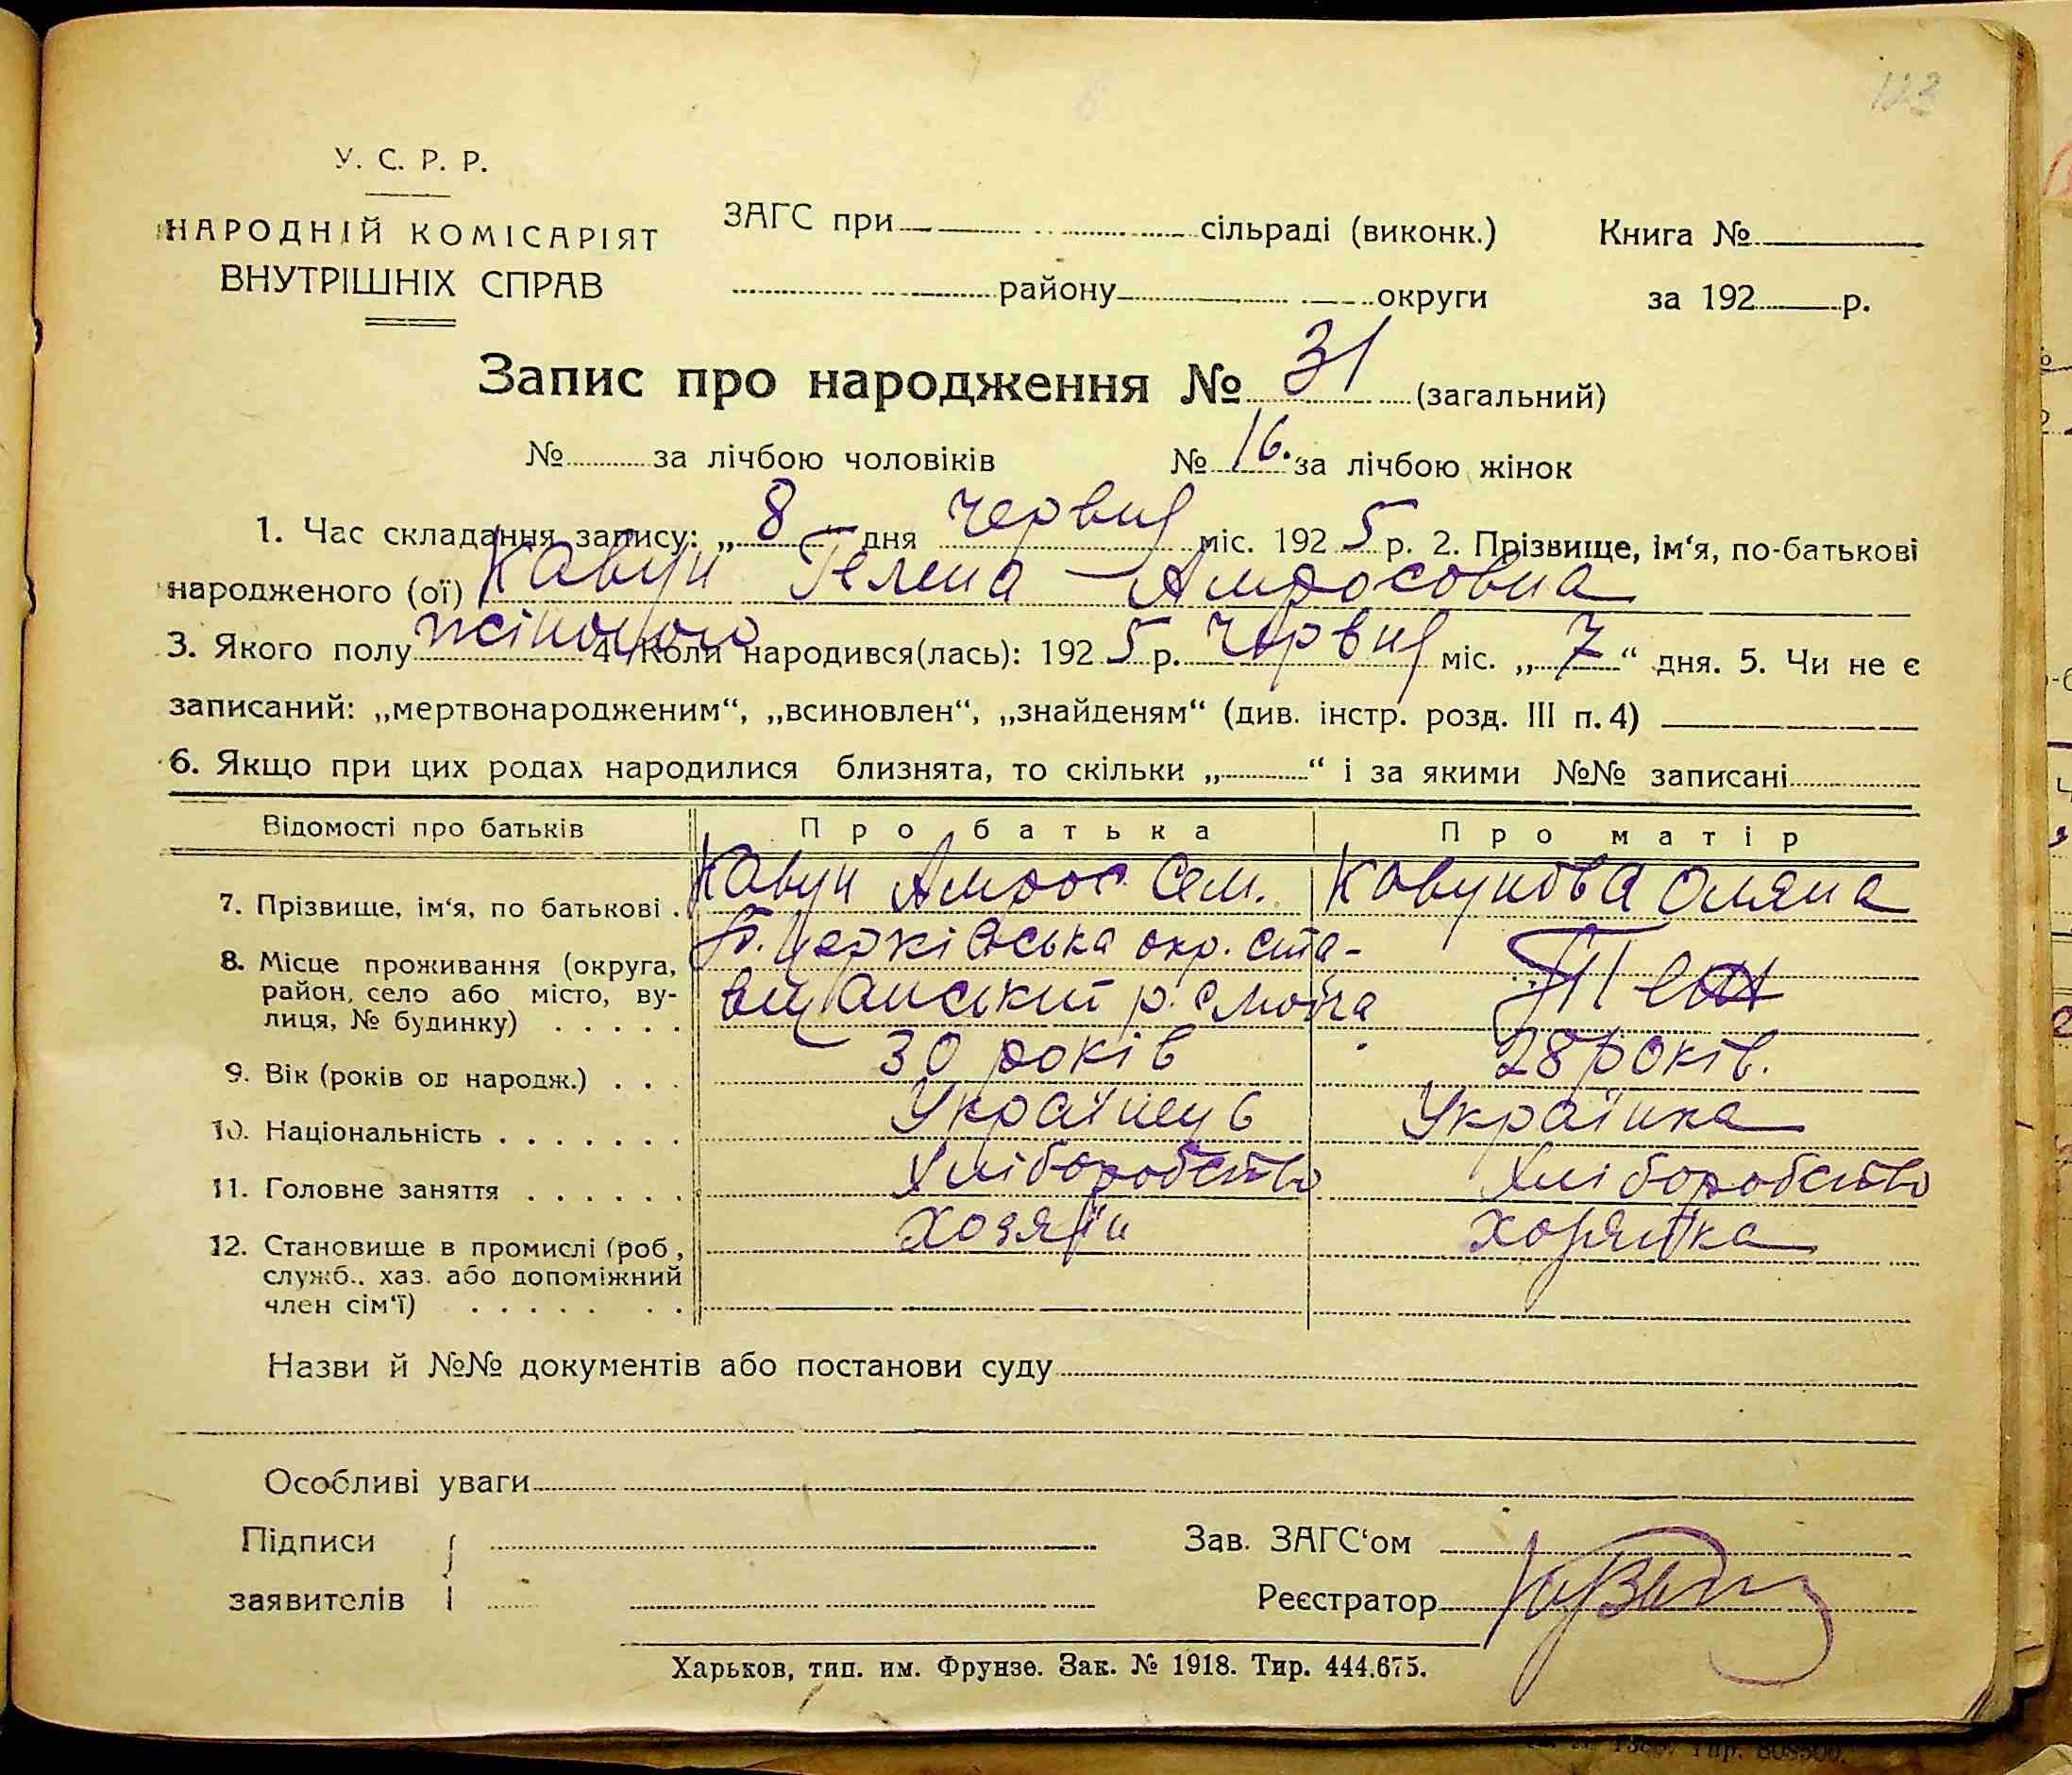 123
У. С. Р. Р.
НАРОДНІЙ КОМІСАРІЯТ
ВНУТРІШНІХ СПРАВ
ЗАГС при сільраді (виконк.)
району округи
Книга №
за 192 р.
Запис про народження № 31 (загальний)
№ за лічбою чоловіків № 16. за лічбою жінок
1. Час складання запису: „ 8 " дня червня міс. 192 5 р. 2. Прізвище, ім'я, по-батькові
народженого (ої) Кавун Гелена - Амросовна
3. Якого полу жіночого 4. Коли народився(лась): 192 5 р. червня міс. „ 7 " дня. 5. Чи не є
записаний: „мертвонародженим", „всиновлен", „знайденям" (див. інстр. розд. III п. 4)
6. Якщо при цих родах народилися близнята, то скільки „ " і за якими №№ записані
Відомості про батьків Про батька Про матір
7. Прізвище, ім'я, по батькові . Кавун Амрос Сем. Кавунова Оляна
8. Місце проживання (округа, район, село або місто, вулиця, № будинку) . . . . . Б. Церківська окр. Ста-
вищанський р.
9. Вік (років од народж.) . . . 30 років 28 років.
10. Національність . . . . . . . Українець Українка
11. Головне заняття . . . . . . Хліборобство Хліборобство
12. Становище в промислі (роб, служб., хаз. або допоміжний член сім'ї) . . . . . . . Хозяїн Хозяйка
Назви й №№ документів або постанови суду
Особливі уваги
Підписи
заявителів
Зав. ЗАГС'ом
Реєстратор
Харьков, тип. им. Фрунзе. Зак. № 1918. Тир. 444.675.